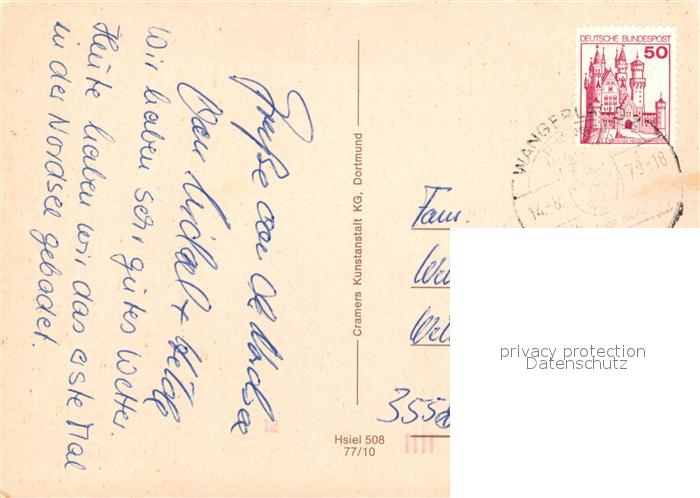 Grüße von der Nordsee
Wir haben sehr gutes Wetter.
Heute haben wir das erste Mal
in der Nordsee gebadet.
Cramers Kunstanstalt KG, Dortmund
Hsiel 508
77/10
DEUTSCHE BUNDESPOST
50
WANGERLA
14.-6. 79-18
Fam.
355
privacy protection
Datenschutz